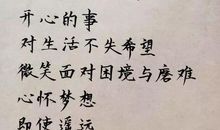 开心的事
对生活不失希望
微笑面对困境与磨难
心怀梦想
即使遥远